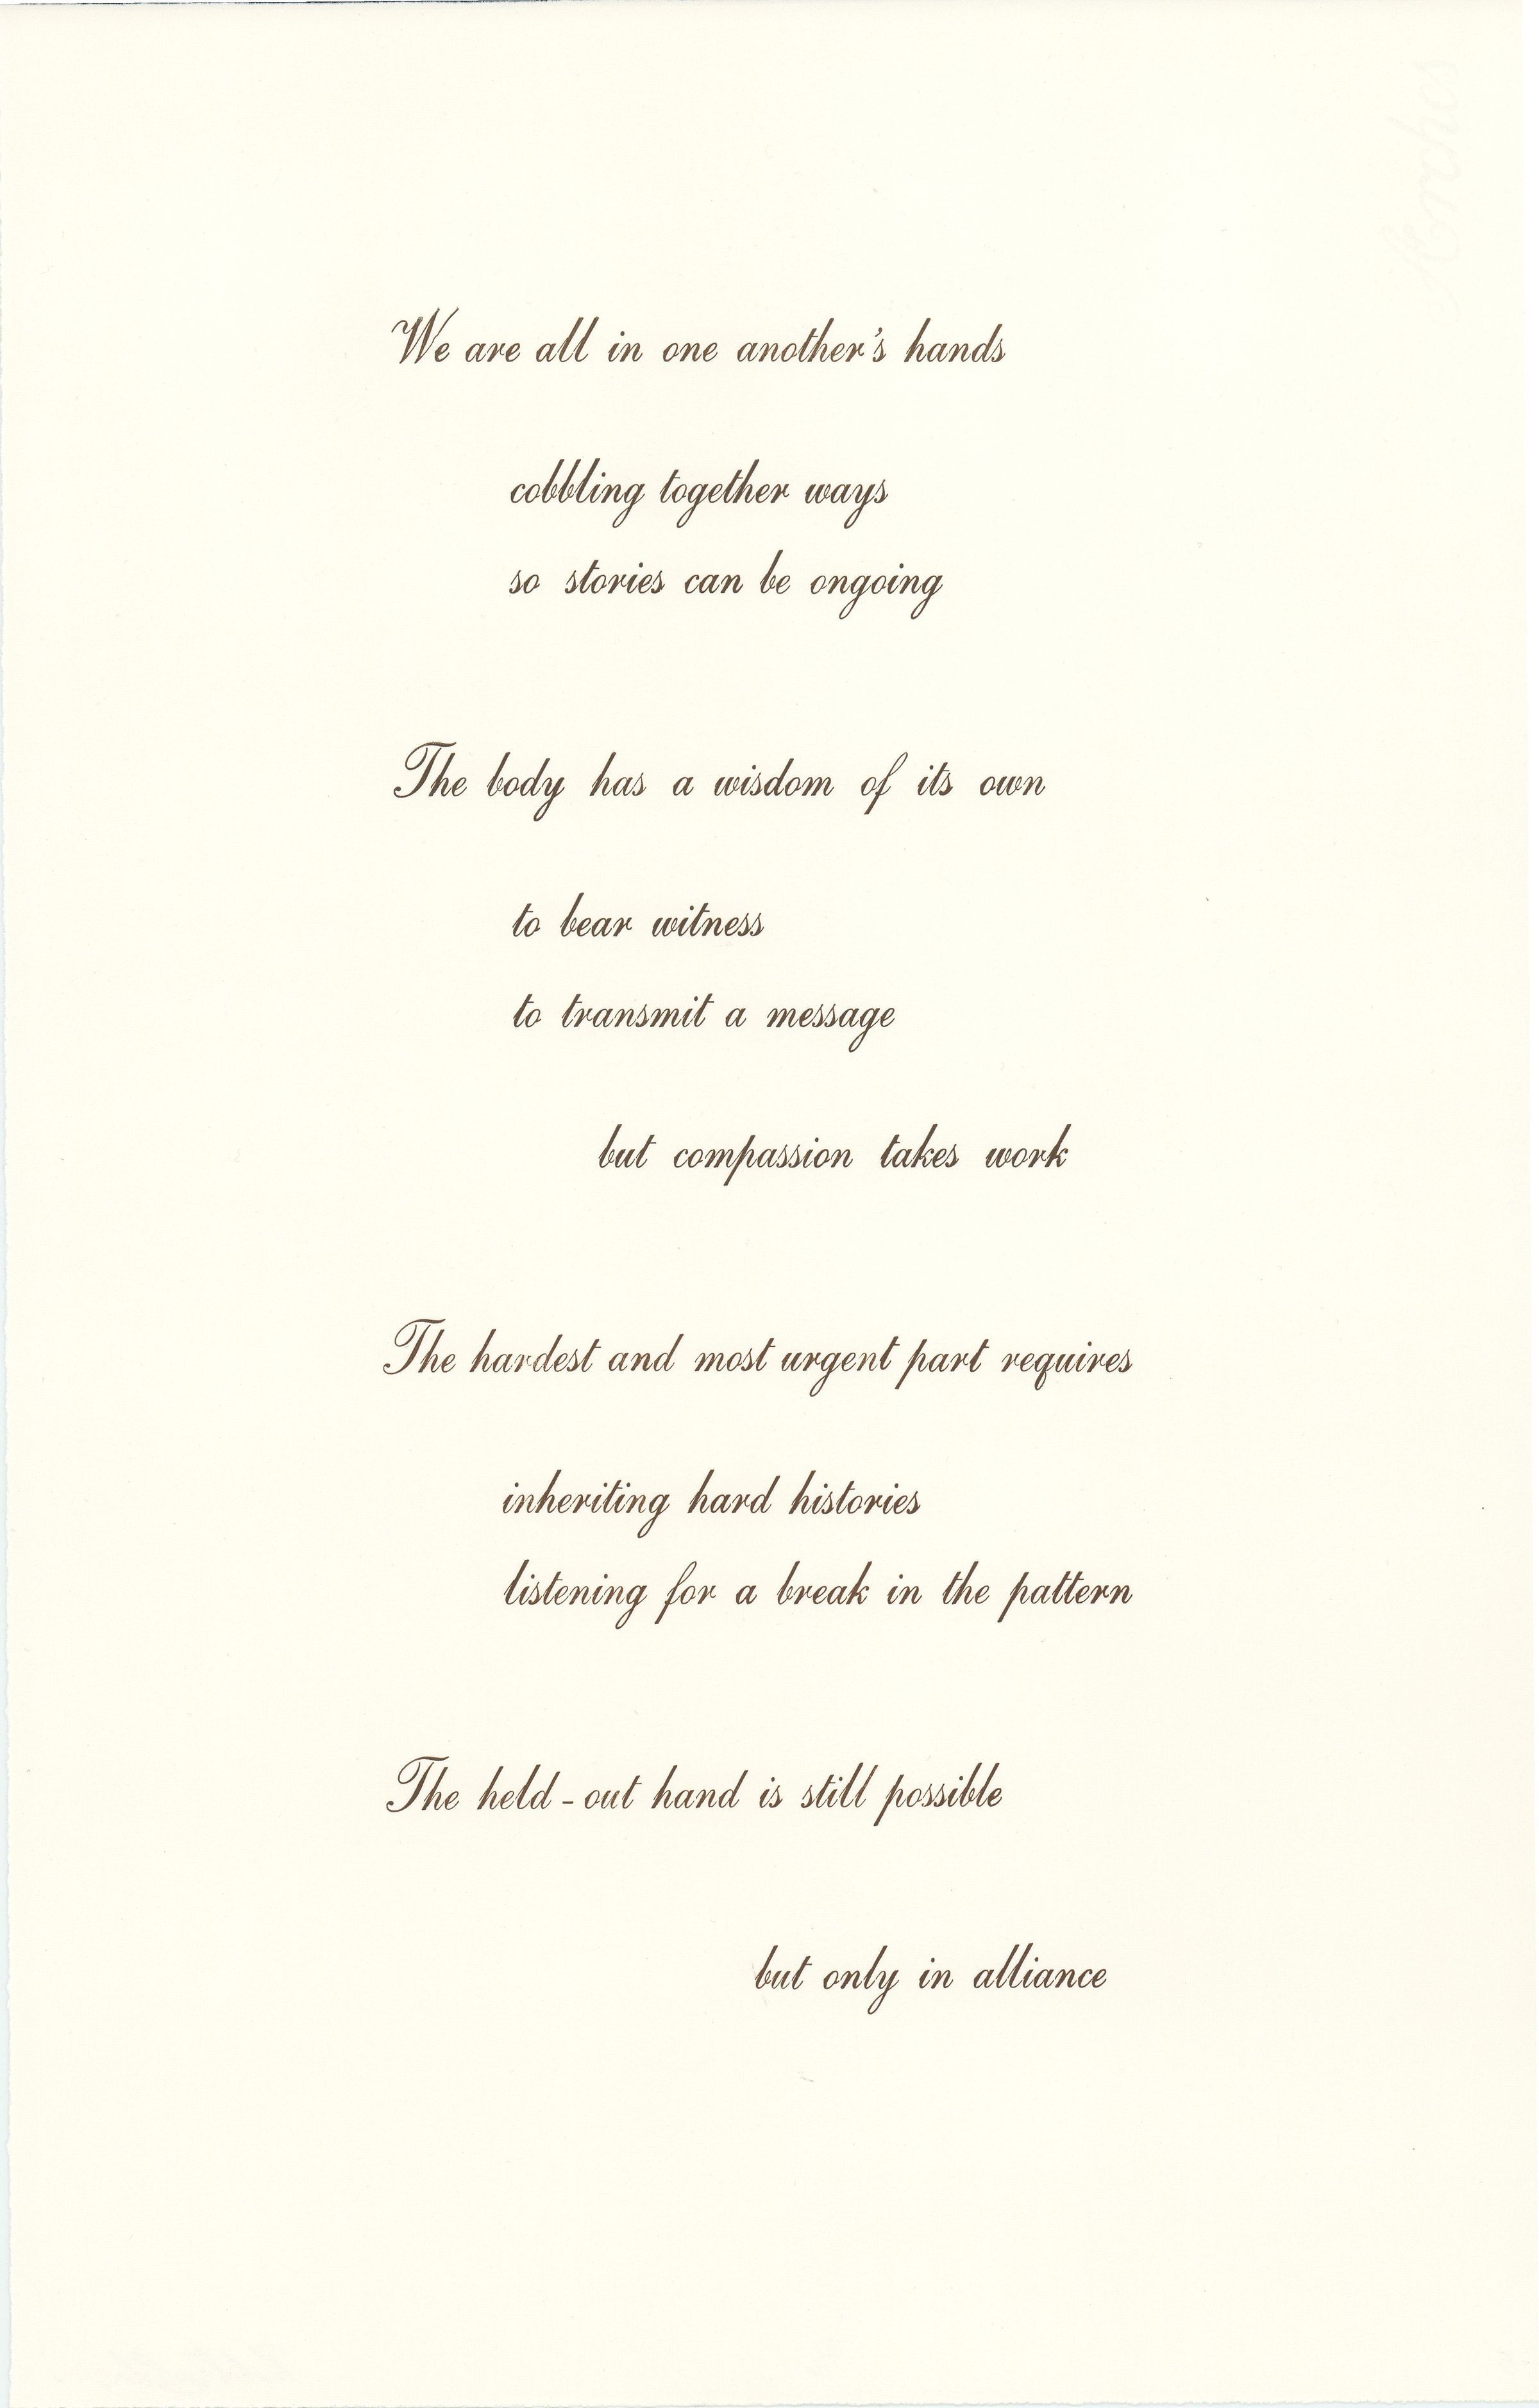 We are all in one another's hands
cobbling together ways
so stories can be ongoing
The body has a wisdom of its own
to bear witness
to transmit a message
but compassion takes work
The hardest and most urgent part requires
inheriting hard histories
listening for a break in the pattern
The held-out hand is still possible
but only in alliance